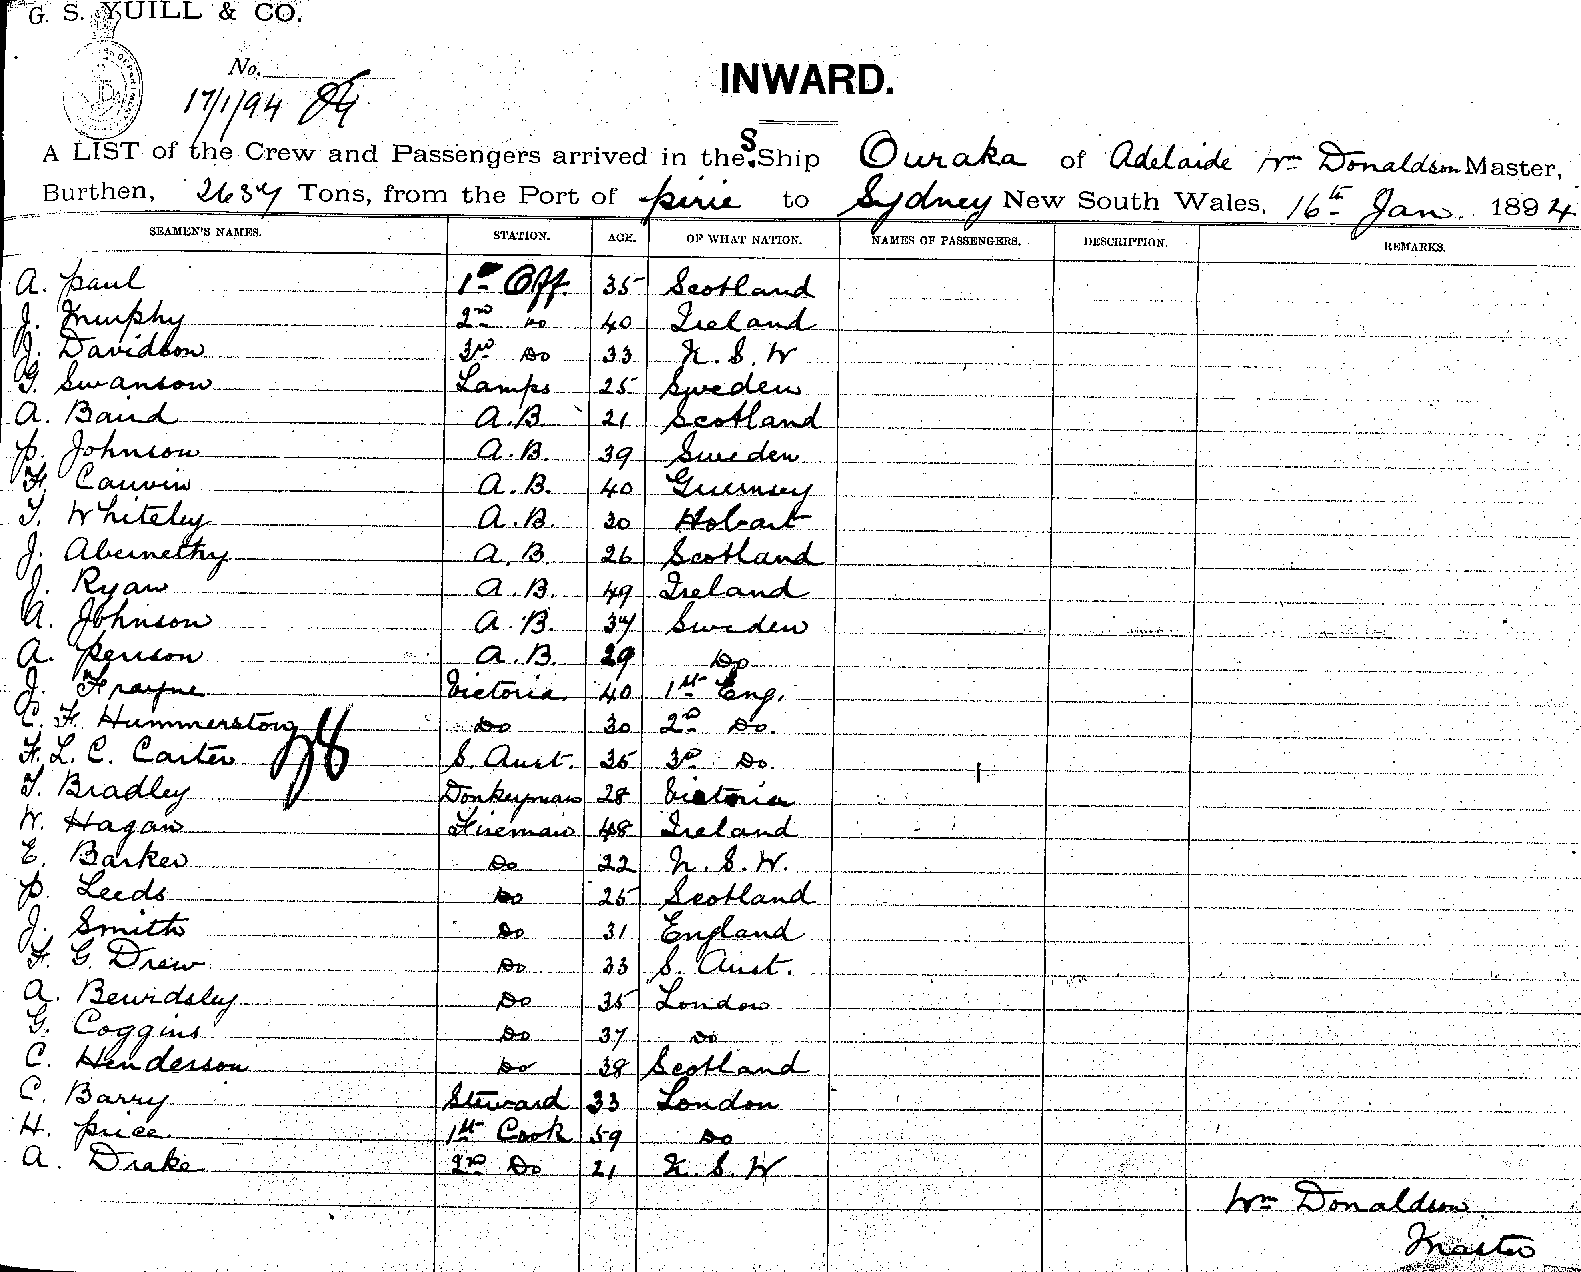 G. S. YUILL & CO.
No.
17/1/94
INWARD.
A LIST of the Crew and Passengers arrived in the S. Ship Ouraka of Adelaide Wm Donaldson Master,
Burthen, 2637 Tons, from the Port of pirie to Sydney New South Wales, 16th Jan. 1894
SEAMEN'S NAMES. STATION. AGE. OF WHAT NATION. NAMES OF PASSENGERS. DESCRIPTION. REMARKS.
A. Paul 1st Off. 35 Scotland
J. Murphy 2nd Do 40 Ireland
J. Davidson 3rd Do 33 N. S. W
G. Swanson Lamps 25 Sweden
A. Baird A.B. 21 Scotland
P. Johnson A.B. 39 Sweden
F. Cauvin A.B. 40 Guernsey
T. Whiteley A.B. 30 Hobart
J. Abernethy A.B. 26 Scotland
J. Ryan A.B. 49 Ireland
A. Johnson A.B. 37 Sweden
A. Perison A.B. 29 Do
J. Frayne Victoria 40 1st Eng.
C. F. Hummerston Do 30 2nd Do.
F. L. C. Carter S. Aust. 35 3rd Do.
T. Bradley Donkeyman 28 Victoria
W. Hagan Fireman 48 Ireland
E. Barker Do 22 N. S. W.
P. Leeds Do 25 Scotland
J. Smith Do 31 England
F. G. Drew Do 33 S. Aust.
A. Beurdsley Do 35 London
G. Coggins Do 37 Do
C. Henderson Do 38 Scotland
C. Barry Steward 33 London
H. Price 1st Cook 59 Do
A. Drake 2nd Do 21 N. S. W
Wm Donaldson
Master